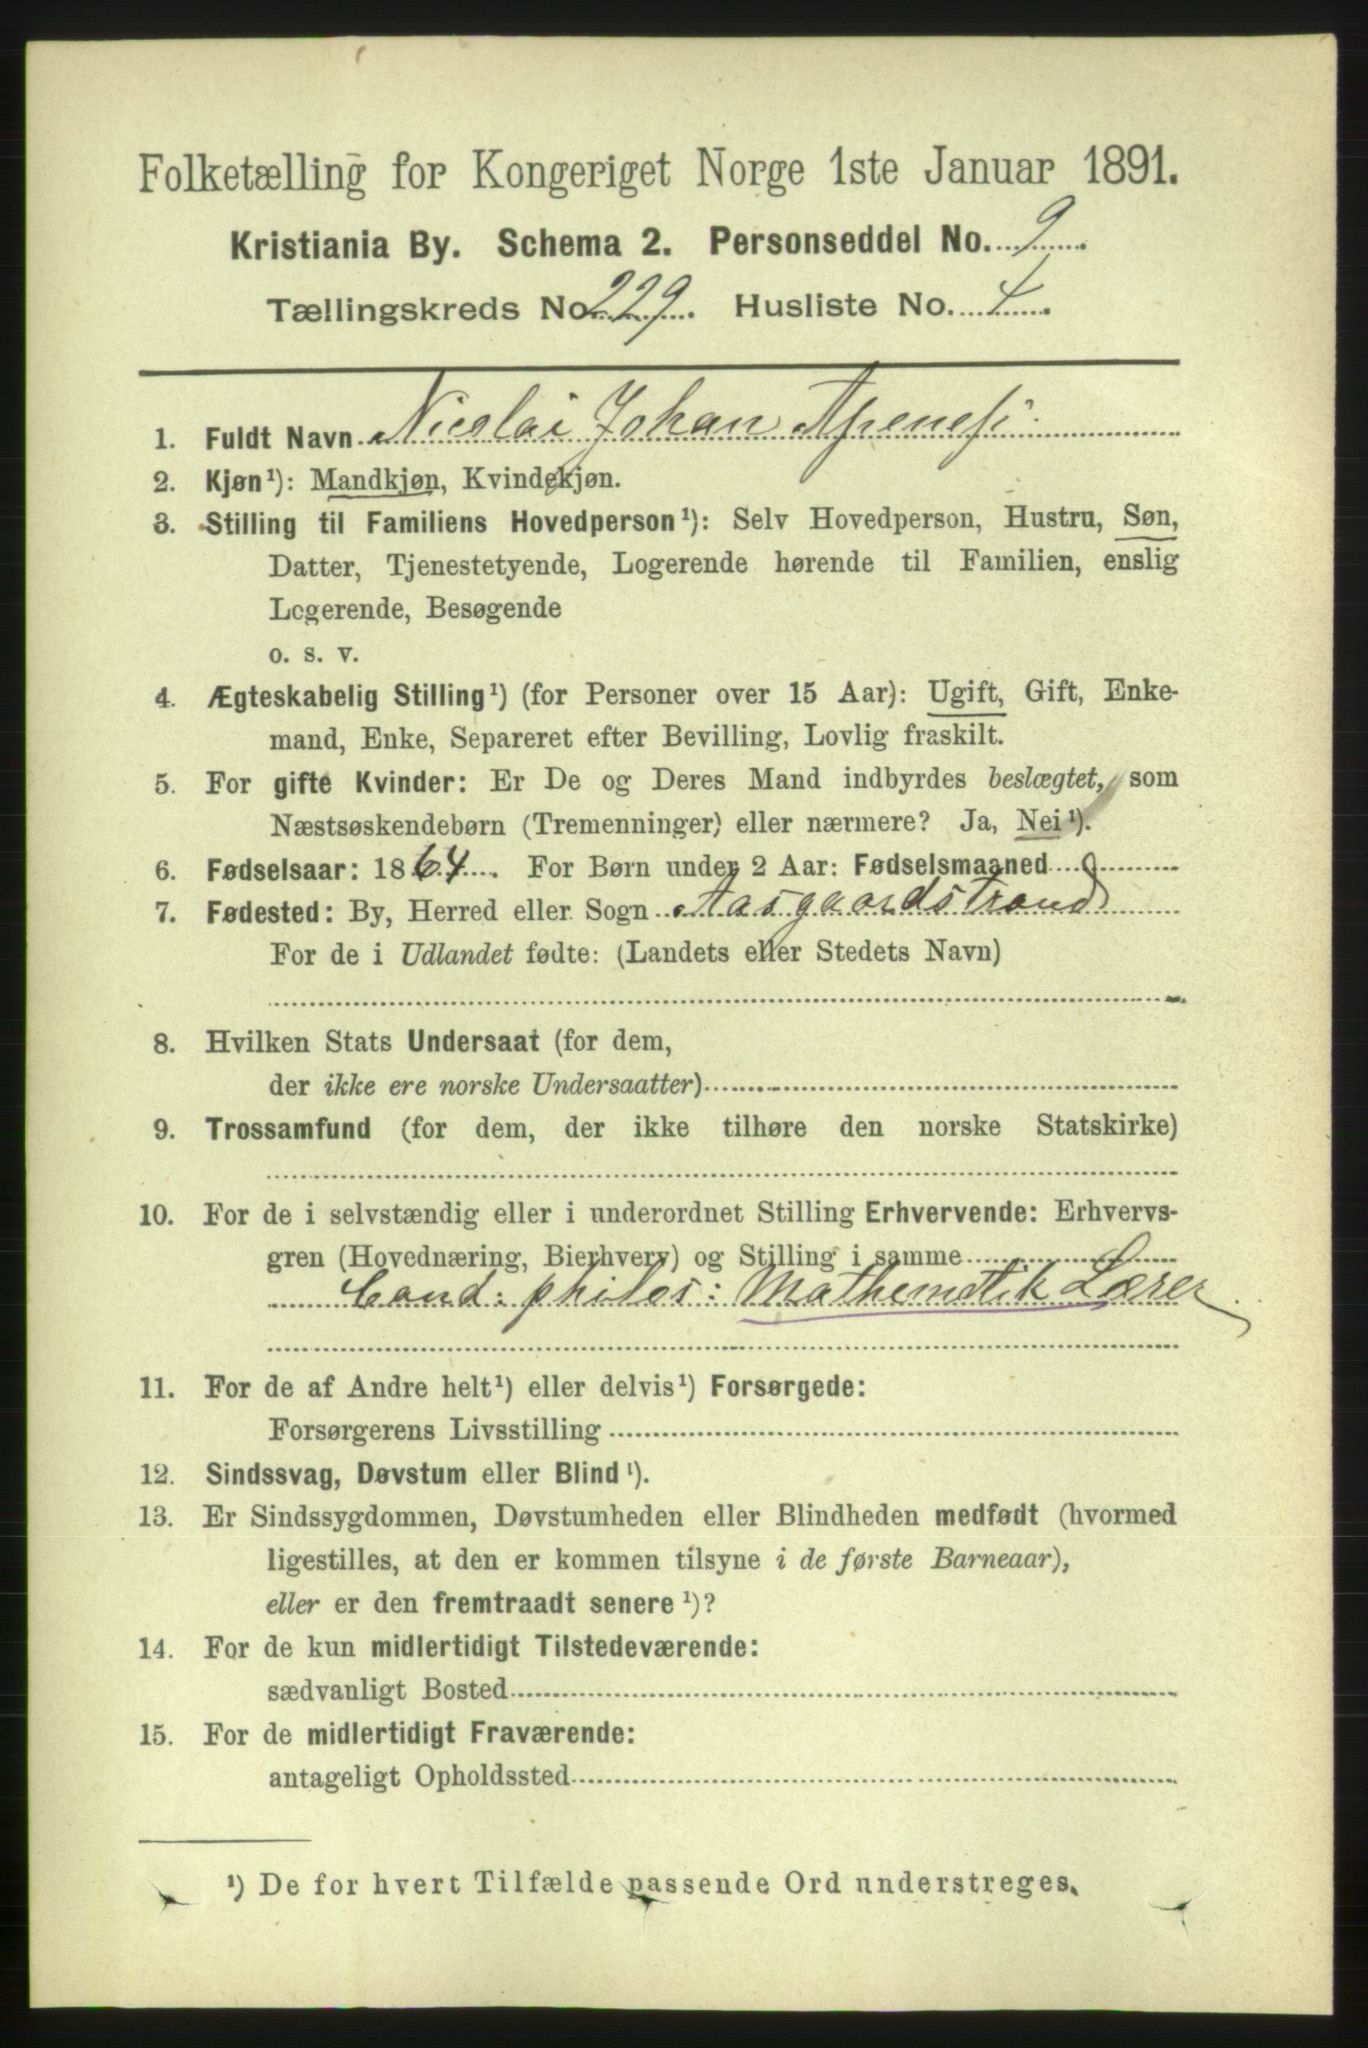 Folketælling for Kongeriget Norge 1ste Januar 1891.
Kristiania By. Schema 2. Personseddel No. 9
Tællingskreds No. 229. Husliste No. 4.
1. Fuldt Navn Nicolai Johan Apenesß
2. Kjøn¹): Mandkjøn, Kvindekjøn.
3. Stilling til Familiens Hovedperson¹): Selv Hovedperson, Hustru, Søn,
Datter, Tjenestetyende, Logerende hørende til Familien, enslig
Logerende, Besøgende
o. s. v.
4. Ægteskabelig Stilling¹) (for Personer over 15 Aar): Ugift, Gift, Enke-
mand, Enke, Separeret efter Bevilling, Lovlig fraskilt.
5. For gifte Kvinder: Er De og Deres Mand indbyrdes beslægtet, som
Næstsøskendebørn (Tremenninger) eller nærmere? Ja, Nei¹).
6. Fødselsaar: 1864. For Børn under 2 Aar: Fødselsmaaned
7. Fødested: By, Herred eller Sogn Aasgaardstrand
For de i Udlandet fødte: (Landets eller Stedets Navn)
8. Hvilken Stats Undersaat (for dem,
der ikke ere norske Undersaatter)
9. Trossamfund (for dem, der ikke tilhøre den norske Statskirke)
10. For de i selvstændig eller i underordnet Stilling Erhvervende: Erhvervs-
gren (Hovednæring, Bierhverv) og Stilling i samme
Cand: philos: Mathematik Lærer
11. For de af Andre helt¹) eller delvis¹) Forsørgede:
Forsørgerens Livsstilling
12. Sindssvag, Døvstum eller Blind¹).
13. Er Sindssygdommen, Døvstumheden eller Blindheden medfødt (hvormed
ligestilles, at den er kommen tilsyne i de første Barneaar),
eller er den fremtraadt senere¹)?
14. For de kun midlertidigt Tilstedeværende:
sædvanligt Bosted
15. For de midlertidigt Fraværende:
antageligt Opholdssted
¹) De for hvert Tilfælde passende Ord understreges.